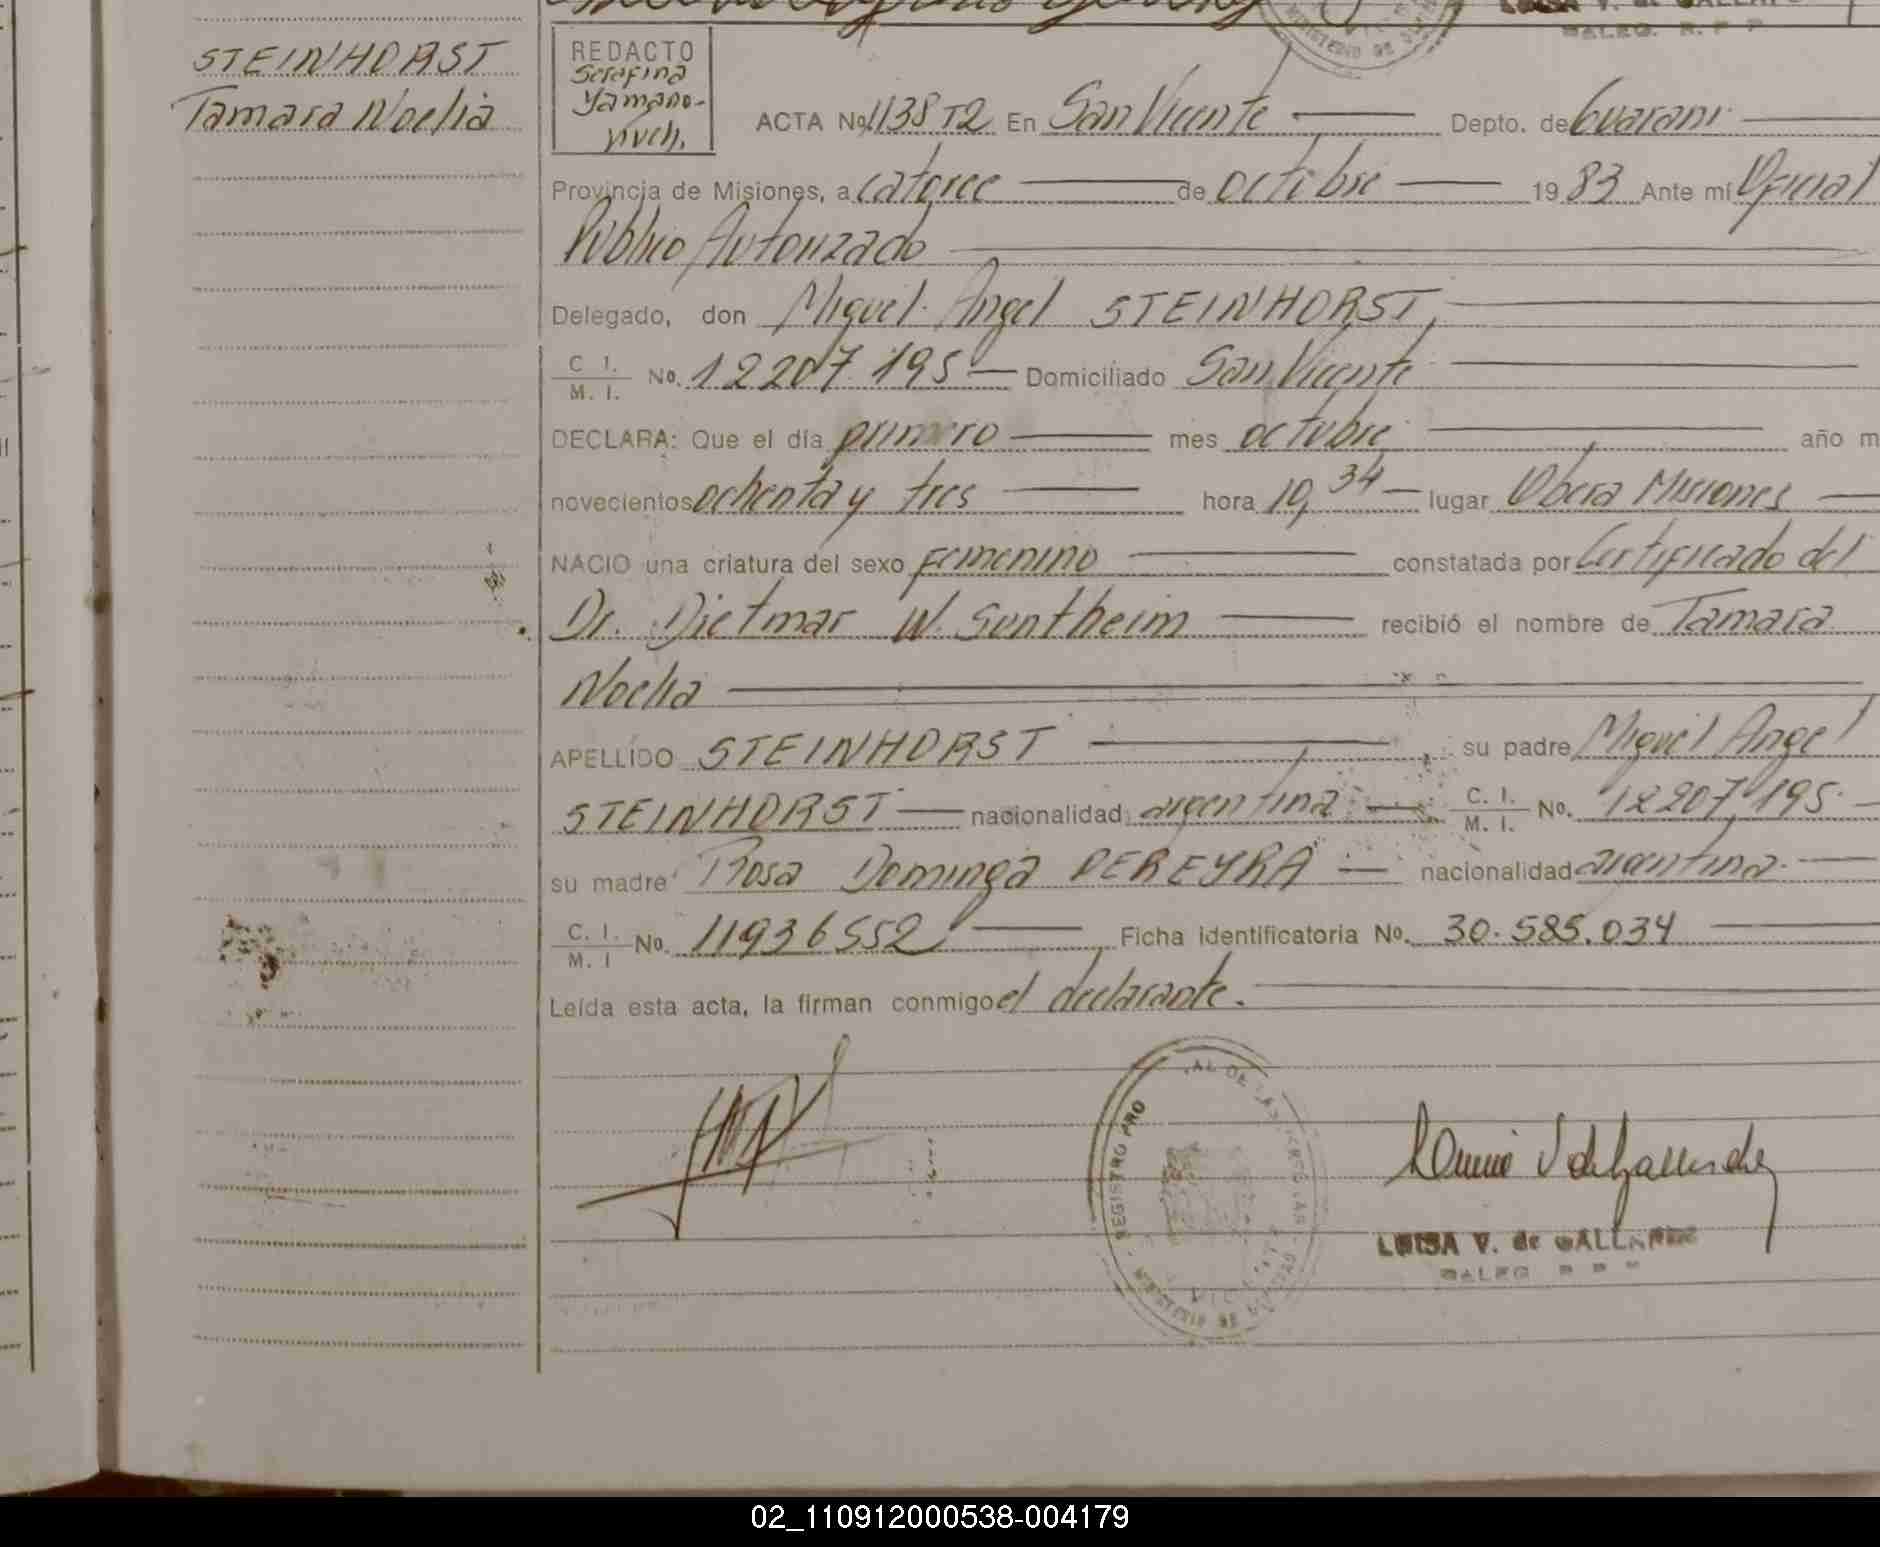 STEINHORST
Tamara Noelia
REDACTO
Serafina
Yamano-
vivch.
ACTA No. 1138 T2 En San Vicente Depto. de Guaraní
Provincia de Misiones, a catorce de octubre 1983 Ante mí Oficial
Público Autorizado
Delegado, don Miguel Angel STEINHORST,
C I.
M. I. No. 12207.195 Domiciliado San Vicente
DECLARA: Que el día primero mes octubre año m
novecientos ochenta y tres hora 10,34 lugar Oberá Misiones
NACIO una criatura del sexo femenino constatada por Certificado del
Dr. Dietmar W. Sontheim recibió el nombre de Tamara
Noelia
APELLIDO STEINHORST, su padre Miguel Angel
STEINHORST nacionalidad argentina C. I.
M. I. No. 12207.195
su madre Rosa Dominga PEREYRA nacionalidad argentina
C. I.
M. I No. 11936552 Ficha identificatoria No. 30.585.034
Leída esta acta, la firman conmigo el declarante.
REGISTRO PRO AL DE LAS PERSONAS
MINISTERIO DE GOBIERNO
LUISA V. de GALLARDO
02_110912000538-004179